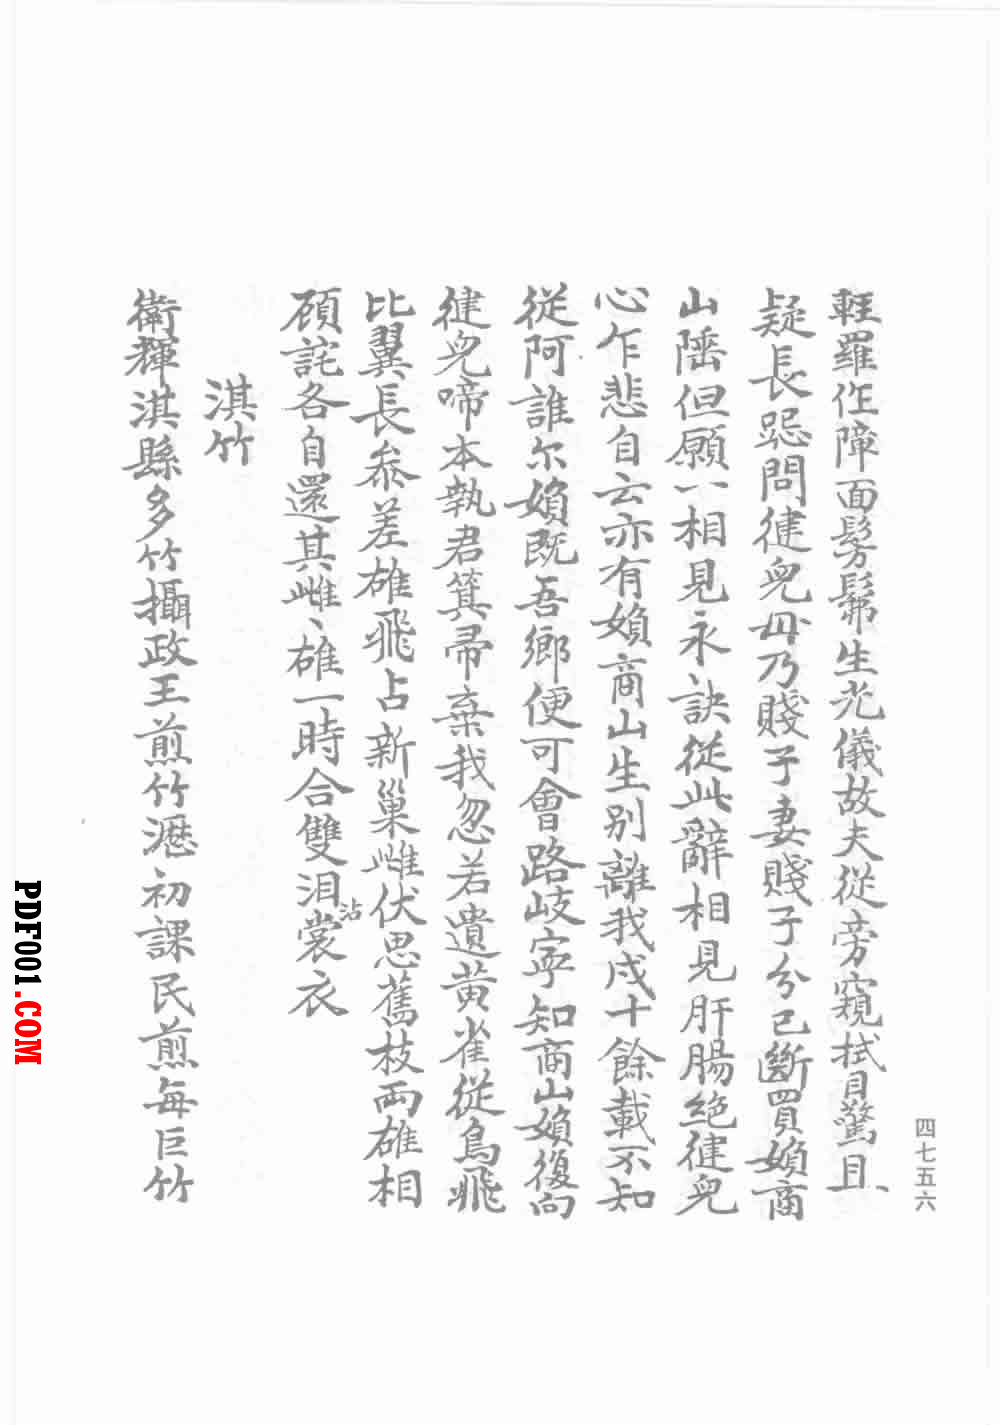 四七五六
輕羅作障面髣髴生光儀故夫從旁窺拭目驚且
疑長跽問健兒毋乃賤子妻賤子分已斷買嬪商
山陲但願一相見永訣從此辭相見肝腸絕健兒
心乍悲自云亦有嬪商山生别離我戍十餘載不知
從阿誰尔嬪既吾鄉便可會路岐寧知商山嬪復向
健兒啼本執君箕帚棄我忽若遺黄雀從烏飛
比翼長參差雄飛占新巢雌伏思舊枝兩雄相
顧詫各自還其雌、雄一時合雙淚沾裳衣
淇竹
衛輝淇縣多竹攝政王煎竹瀝初課民煎每巨竹
PDF001.COM